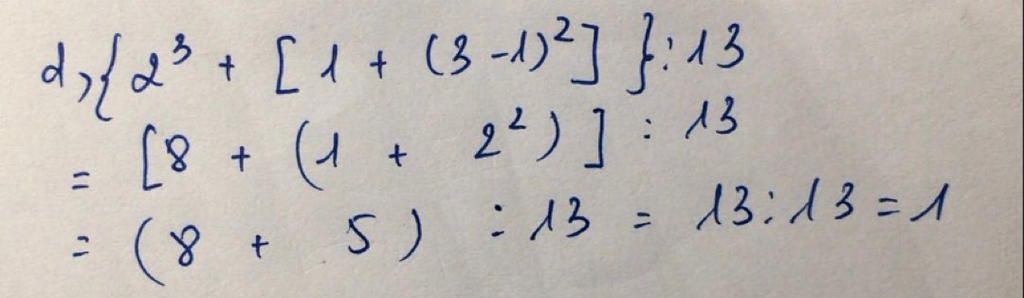 d, {2³ + [1 + (3 - 1)²] } : 13
= [8 + (1 + 2²)] : 13
= (8 + 5) : 13 = 13 : 13 = 1